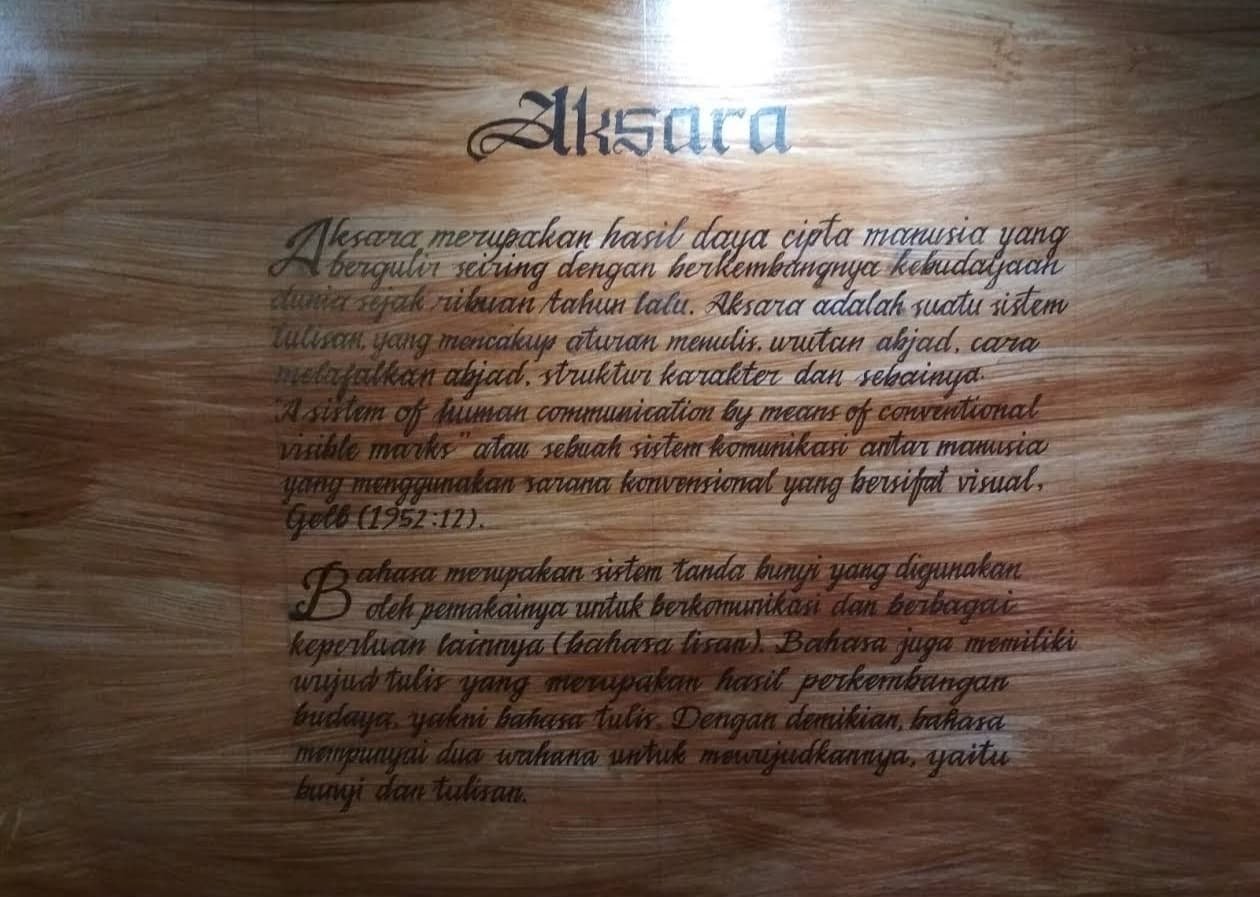 Aksara
Aksara merupakan hasil daya cipta manusia yang
bergulir seiring dengan berkembangnya kebudayaan
dunia sejak ribuan tahun lalu. Aksara adalah suatu sistem
tulisan, yang mencakup aturan menulis, urutan abjad, cara
melafalkan abjad, struktur karakter dan sebainya.
"A sistem of human communication by means of conventional
visible marks" atau sebuah sistem komunikasi antar manusia
yang menggunakan sarana konvensional yang bersifat visual,
Gelb (1952:12).
Bahasa merupakan sistem tanda bunyi yang digunakan
oleh pemakainya untuk berkomunikasi dan berbagai
keperluan lainnya (bahasa lisan). Bahasa juga memiliki
wujud tulis yang merupakan hasil perkembangan
budaya, yakni bahasa tulis. Dengan demikian, bahasa
mempunyai dua wahana untuk mewujudkannya, yaitu
bunyi dan tulisan.